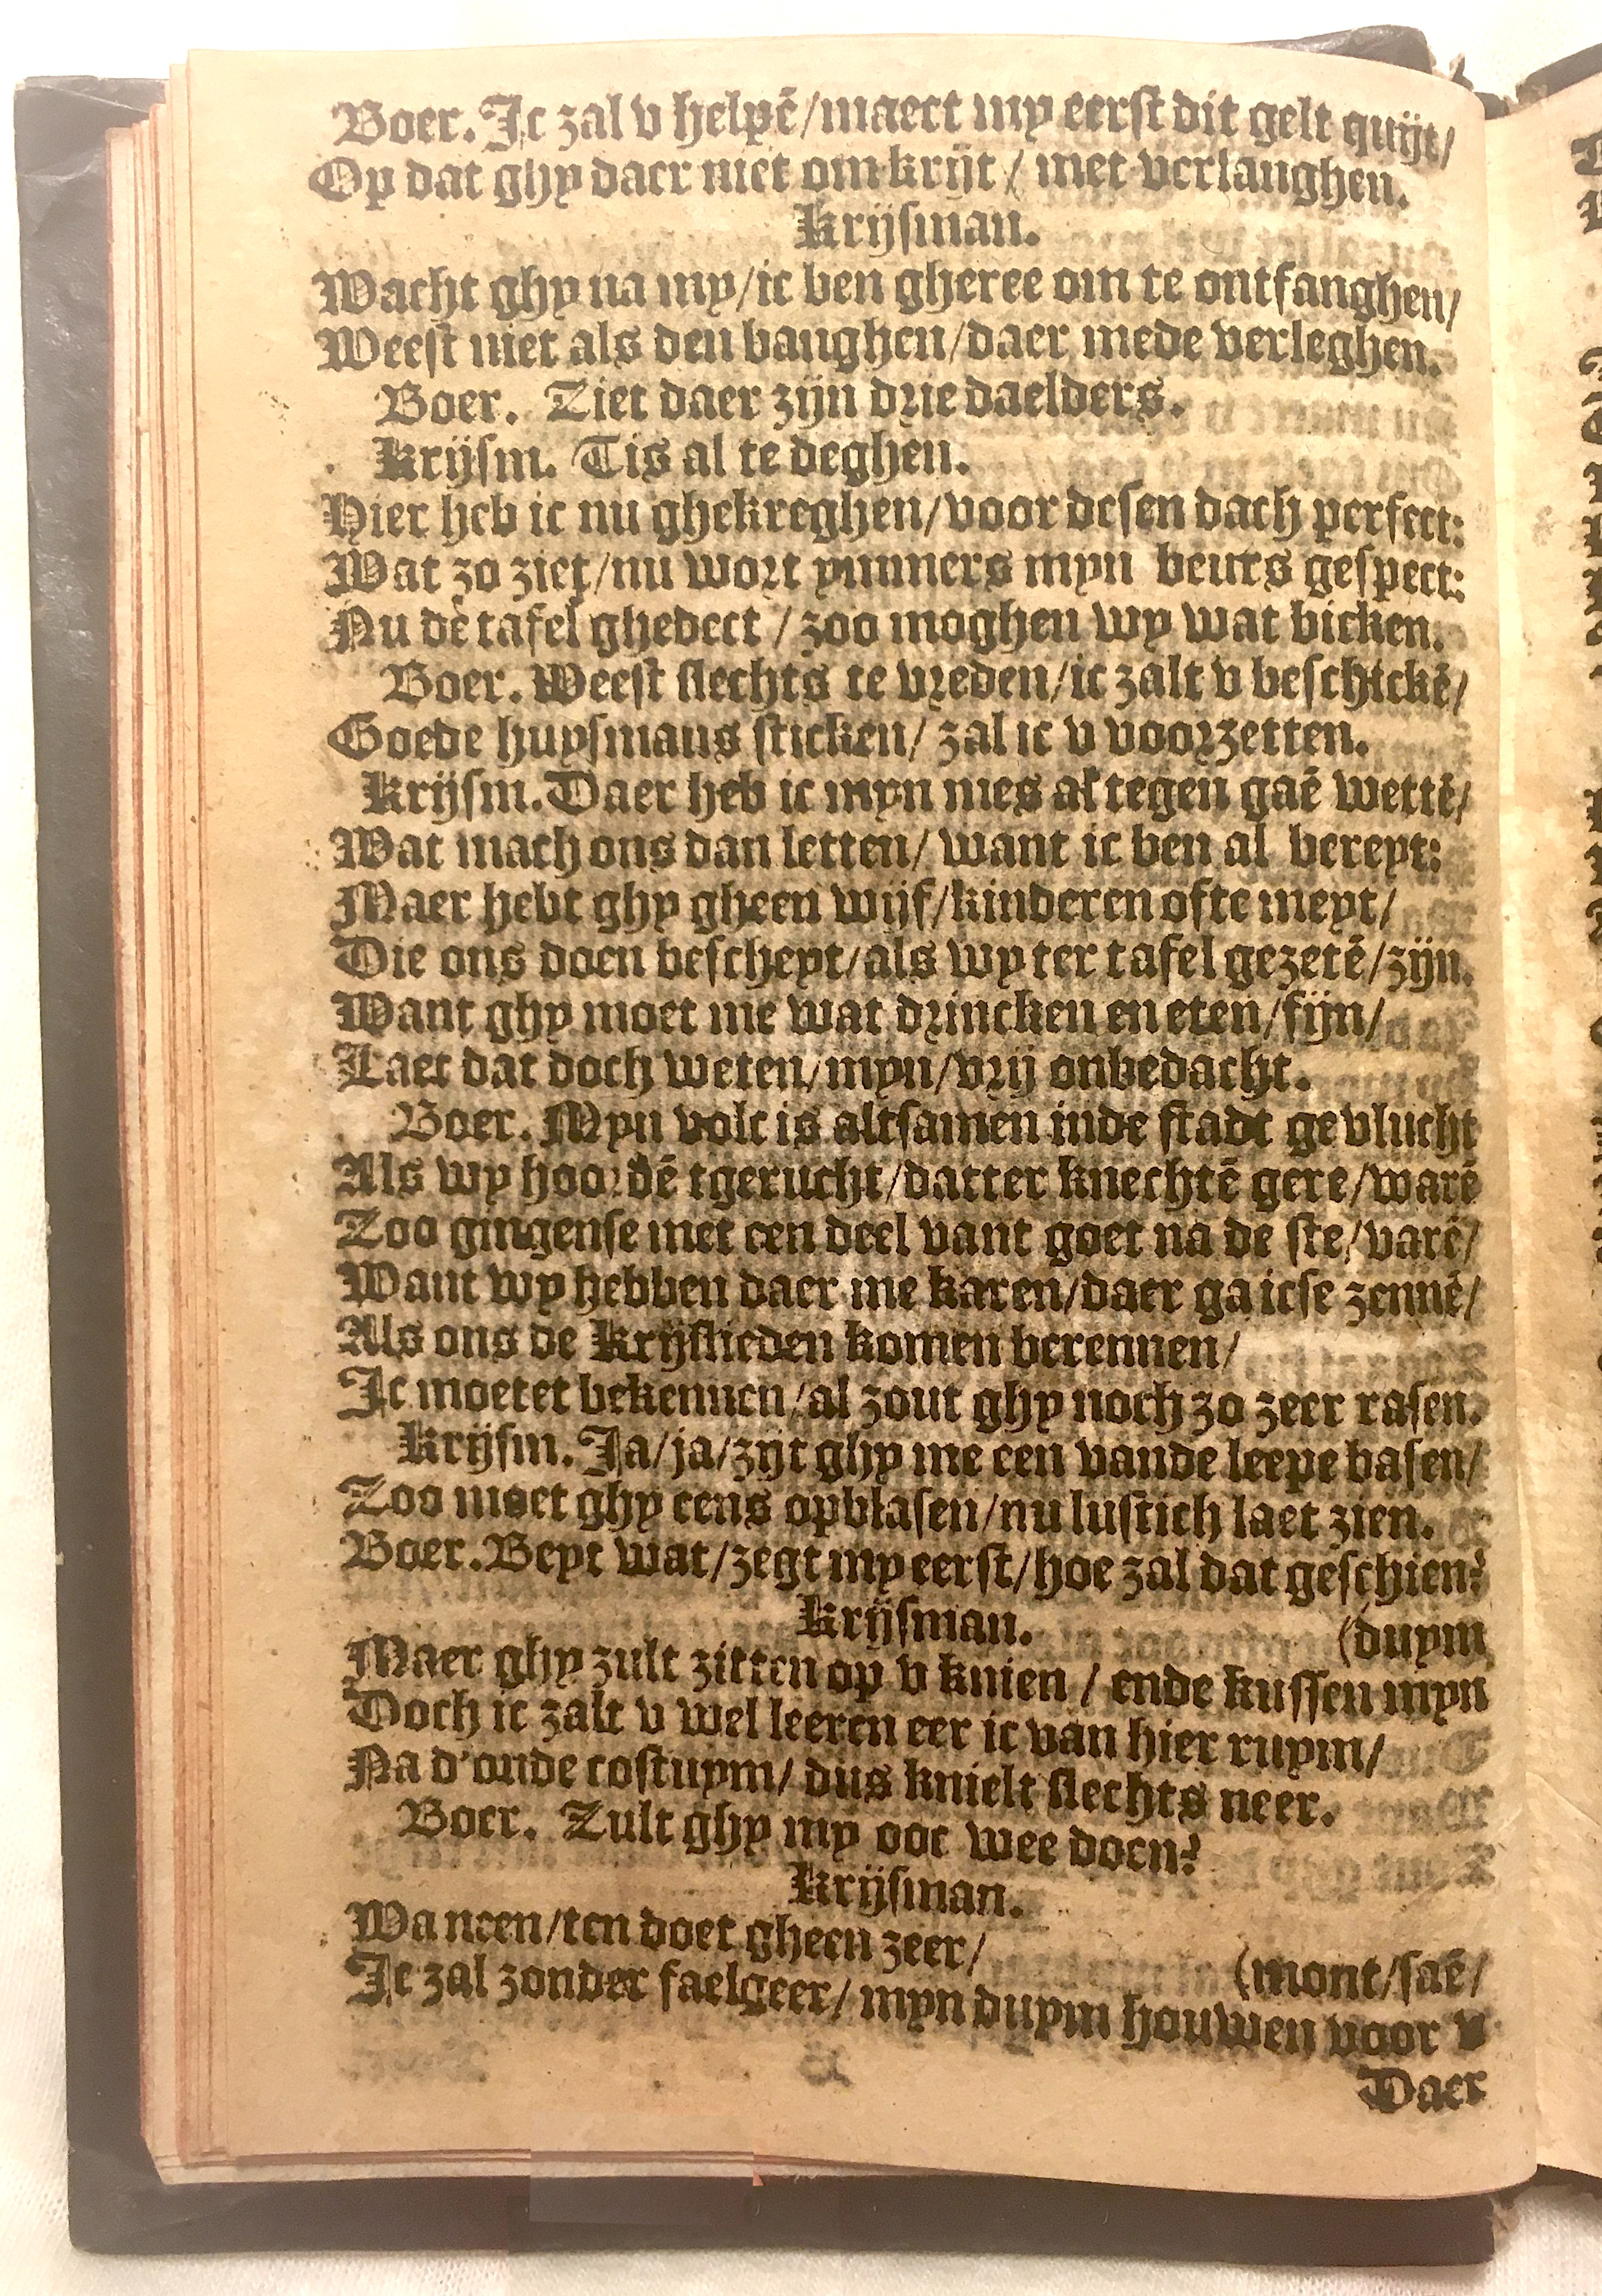 Boer. Ic zal v helpē/maect my eerst dit gelt quijt/
Op dat ghy daer niet om krijt / met verlanghen.
Krijsman.
Wacht ghy na my/ic ben gheree om te ontfanghen/
Weest niet als den banghen/daer mede verleghen.
Boer. Ziet daer zijn drie daelders.
Krijsm. Tis al te deghen.
Hier heb ic nu ghekreghen/voor desen dach perfect:
Wat zo ziet/nu wort ymmers myn beurs gespect:
Nu dē tafel ghedect / zoo moghen wy wat bicken.
Boer. Weest slechts te vreden/ic zalt v beschickē/
Goede huysmans sticken/ zal ic v voorzetten.
Krijsm. Daer heb ic myn mes al tegen gaē wettē/
Wat mach ons dan letten/ want ic ben al bereyt:
Maer hebt ghy gheen wijf/kinderen ofte meyt/
Die ons doen bescheyt/als wy ter tafel gezetē/zijn.
Want ghy moet me wat drincken en eten/fijn/
Laet dat doch weten/myn/vrij onbedacht.
Boer. Myn volc is altsamen inde stadt gevlucht
Als wy hoordē tgerucht/datter knechtē gere/warē
Zoo gingense met een deel vant goet na de ste/varē/
Want wy hebben daer me karen/daer ga icse zennē/
Als ons de Krijslieden komen berennen/
Ic moetet bekennen/al zout ghy noch zo zeer rasen.
Krijsm. Ja/ja/zijt ghy me een vande leepe basen/
Zoo moet ghy eens opblasen/nu lustich laet zien.
Boer. Beyt wat/zegt my eerst/hoe zal dat geschien?
Krijsman. (duym
Maer ghy zult zitten op v knien / ende kussen myn
Doch ic zalt v wel leeren eer ic van hier ruym/
Na d'oude costuym/ dus knielt slechts neer.
Boer. Zult ghy my ooc wee doen?
Krijsman.
Wa neen/ten doet gheen zeer/ (mont/saē/
Ic zal zonder faelgeer/ myn duym houwen voor v
Daer